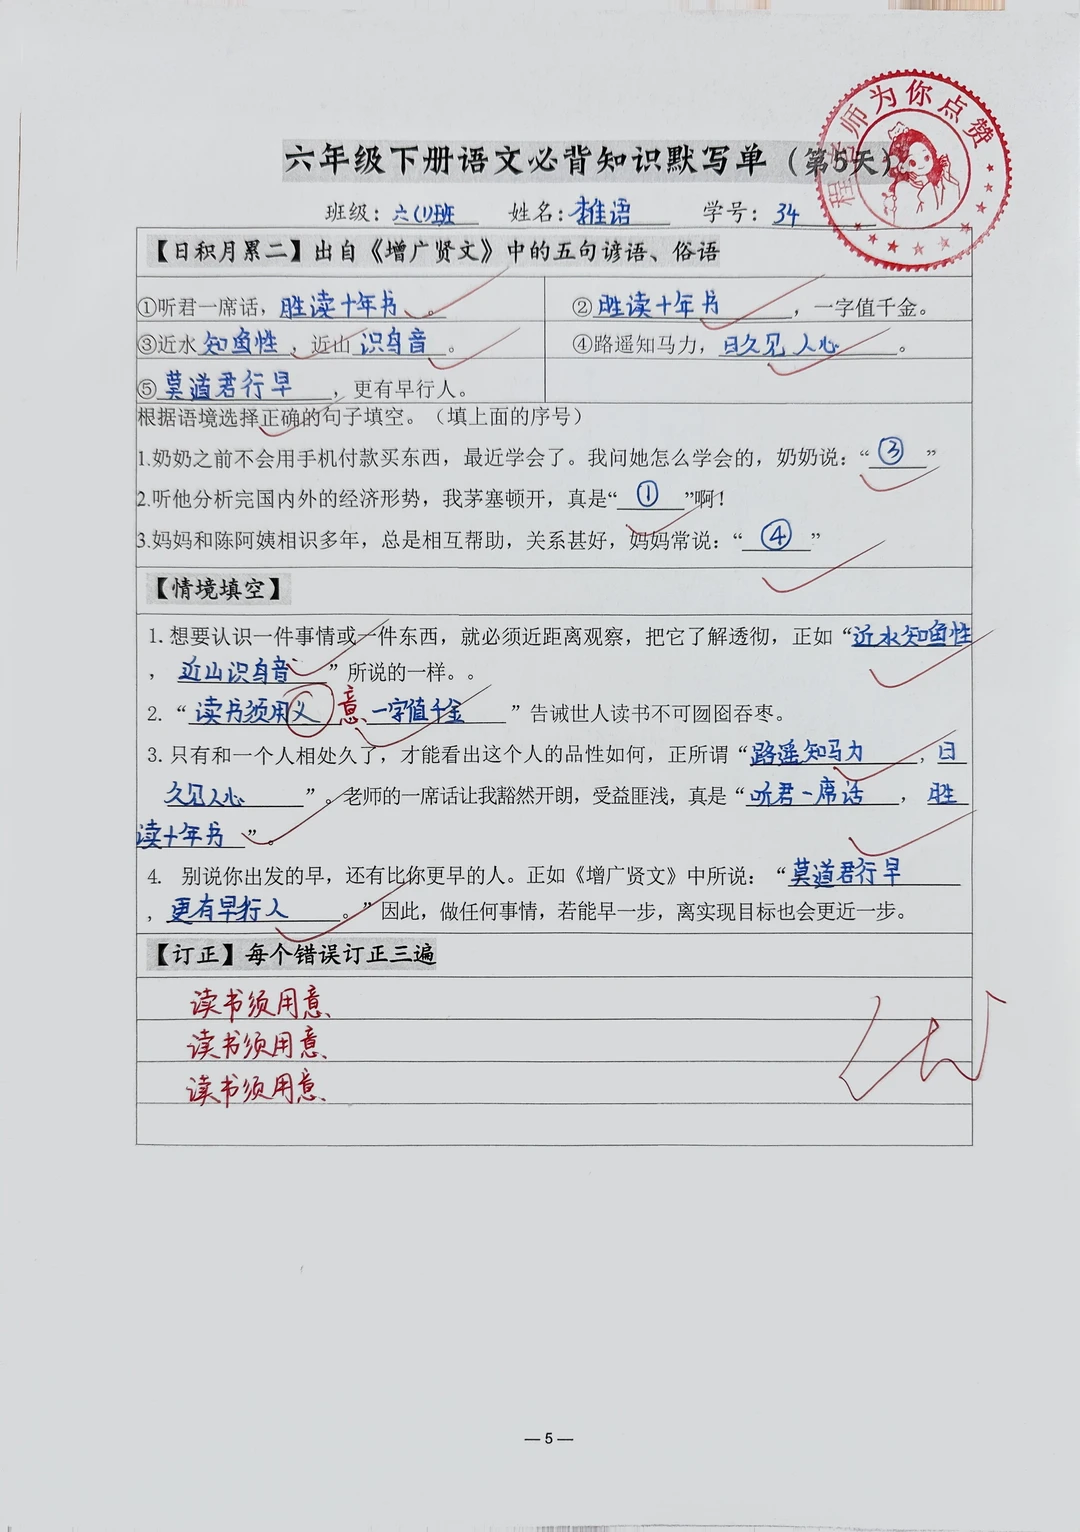 程老师为你点赞
六年级下册语文必背知识默写单（第5天）
班级：六(1)班 姓名：推语 学号：34
【日积月累二】出自《增广贤文》中的五句谚语、俗语
①听君一席话，胜读十年书。 ②胜读十年书，一字值千金。
③近水知鱼性，近山识鸟音。 ④路遥知马力，日久见人心。
⑤莫道君行早，更有早行人。
根据语境选择正确的句子填空。（填上面的序号）
1.奶奶之前不会用手机付款买东西，最近学会了。我问她怎么学会的，奶奶说：“③”
2.听他分析完国内外的经济形势，我茅塞顿开，真是“①”啊！
3.妈妈和陈阿姨相识多年，总是相互帮助，关系甚好，妈妈常说：“④”
【情境填空】
1. 想要认识一件事情或一件东西，就必须近距离观察，把它了解透彻，正如“近水知鱼性
，近山识鸟音”所说的一样。。
2. “读书须用义 意 一字值千金”告诫世人读书不可囫囵吞枣。
3. 只有和一个人相处久了，才能看出这个人的品性如何，正所谓“路遥知马力，日
久见人心”。老师的一席话让我豁然开朗，受益匪浅，真是“听君一席话，胜
读十年书”。
4. 别说你出发的早，还有比你更早的人。正如《增广贤文》中所说：“莫道君行早
，更有早行人。”因此，做任何事情，若能早一步，离实现目标也会更近一步。
【订正】每个错误订正三遍
读书须用意
读书须用意
读书须用意
—5—